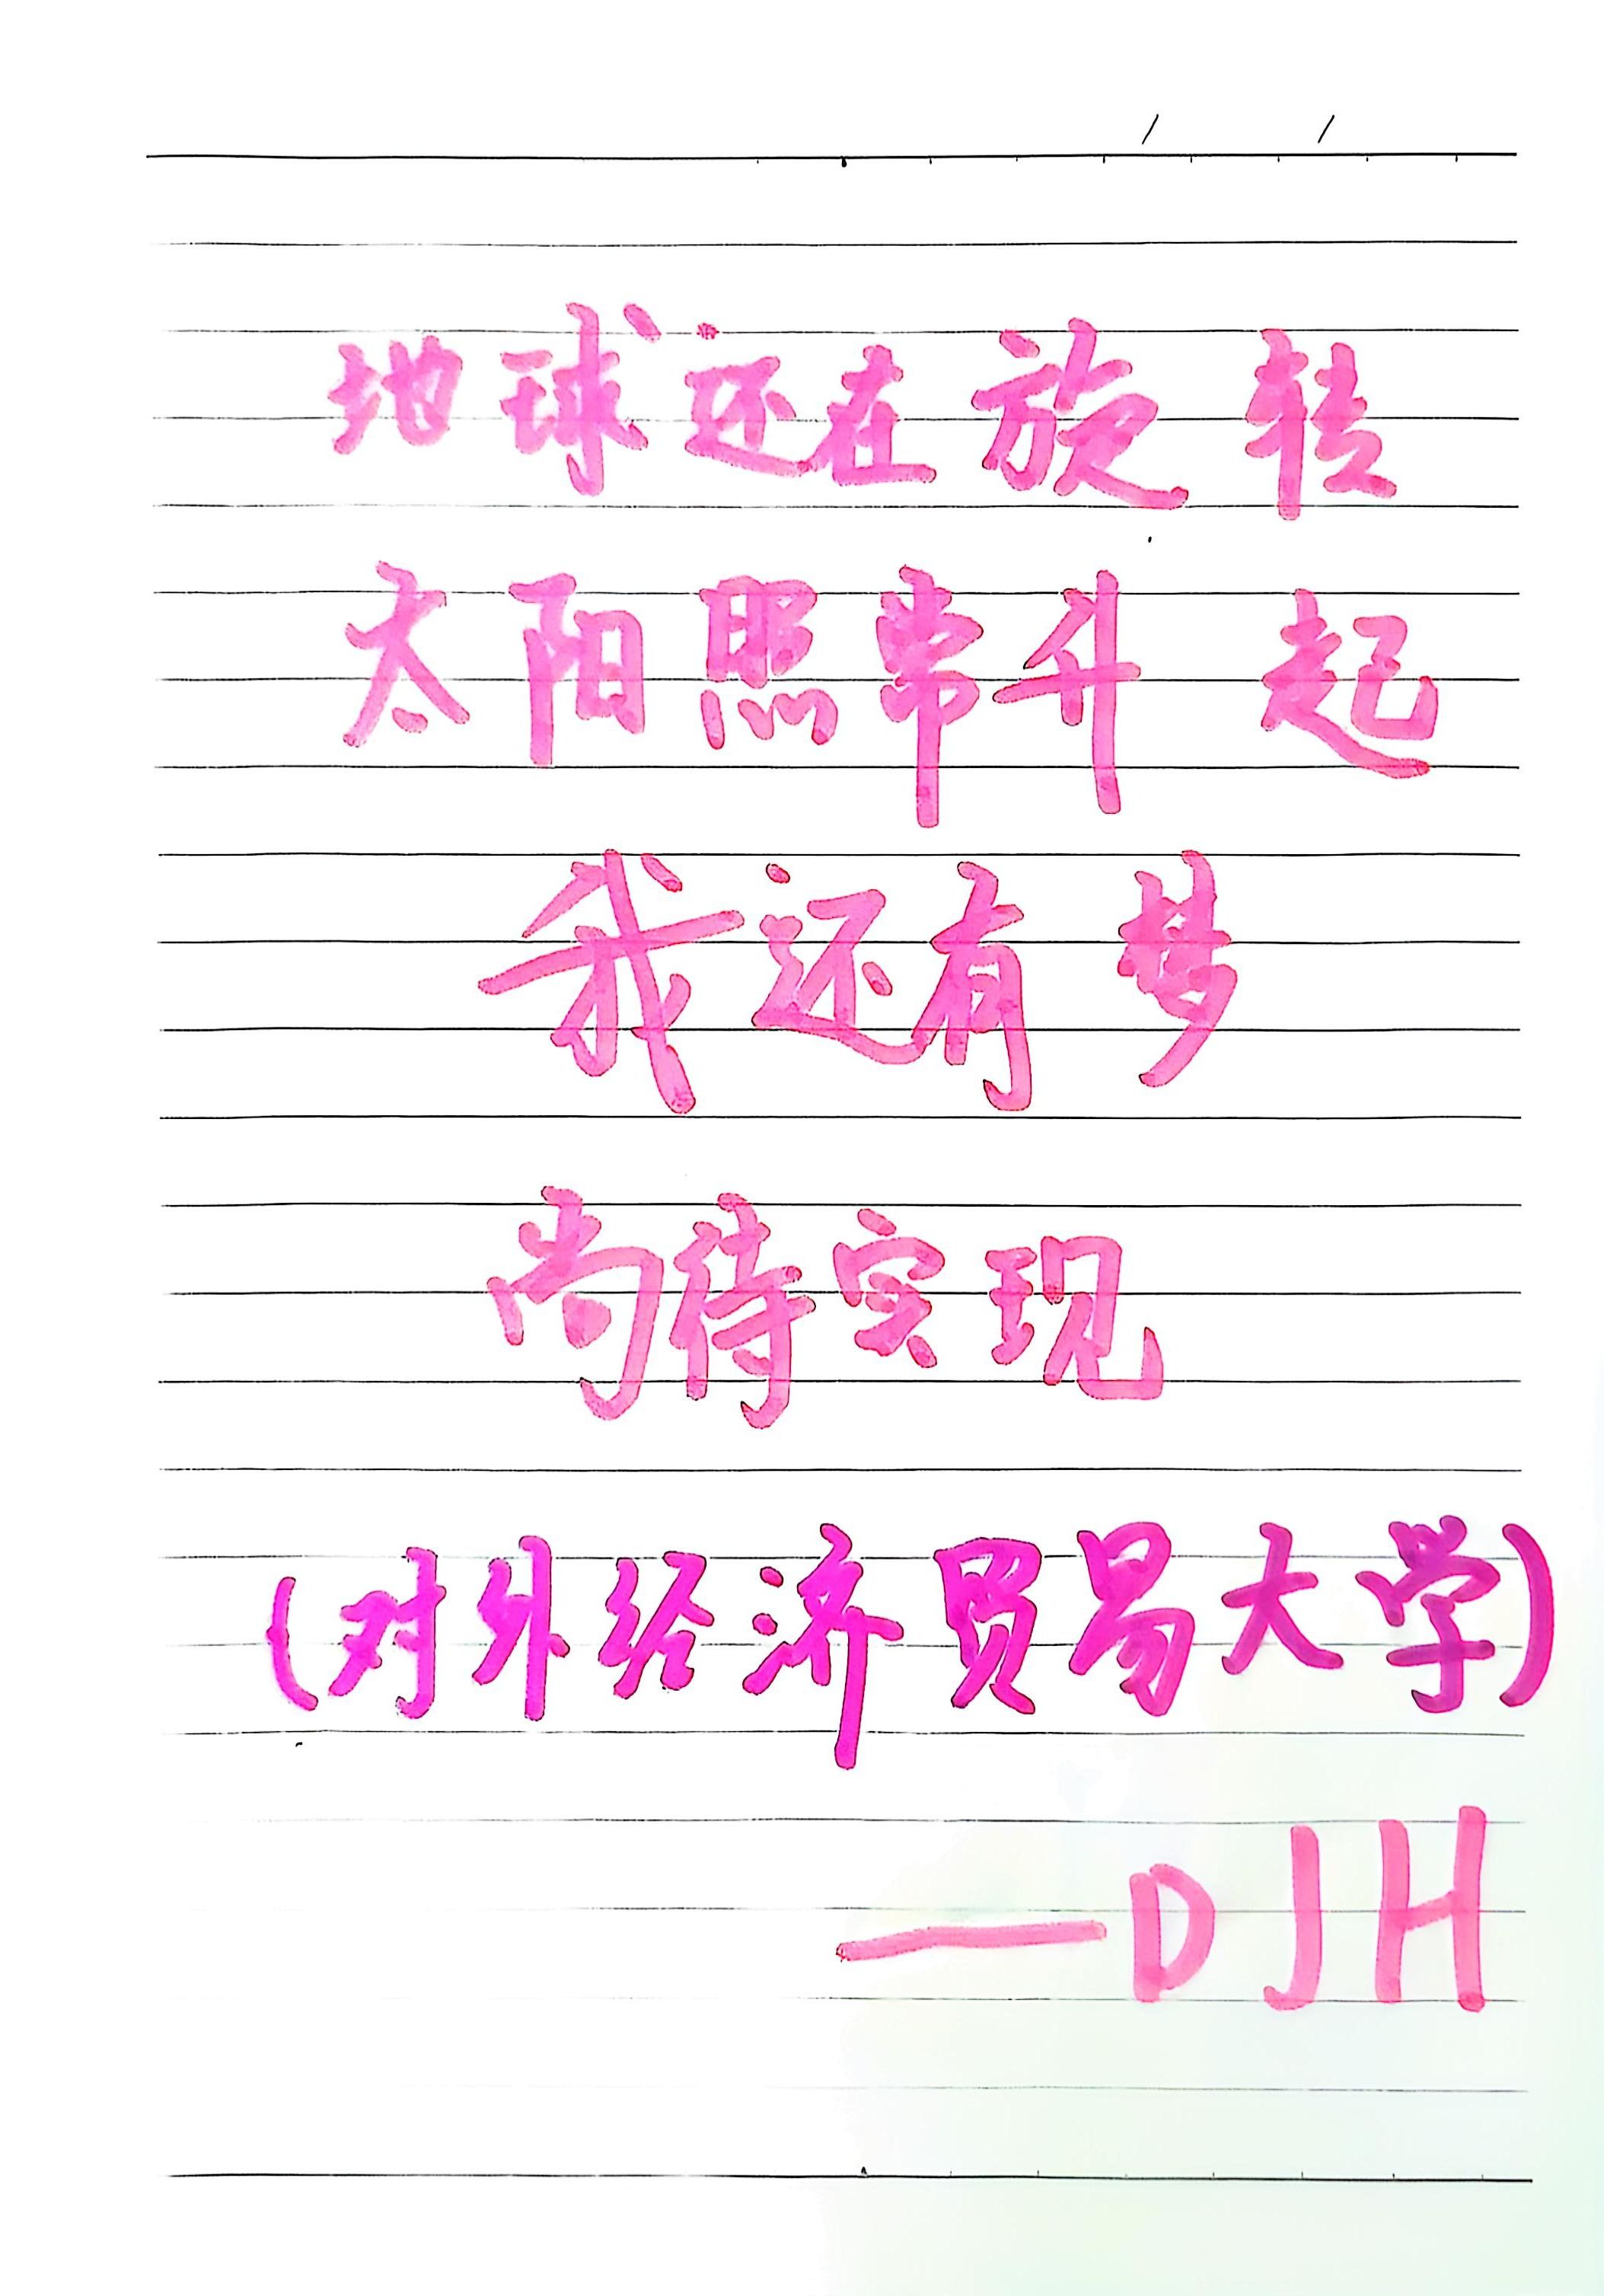 地球还在旋转
太阳照常升起
我还有梦
尚待实现
(对外经济贸易大学)
—DJH